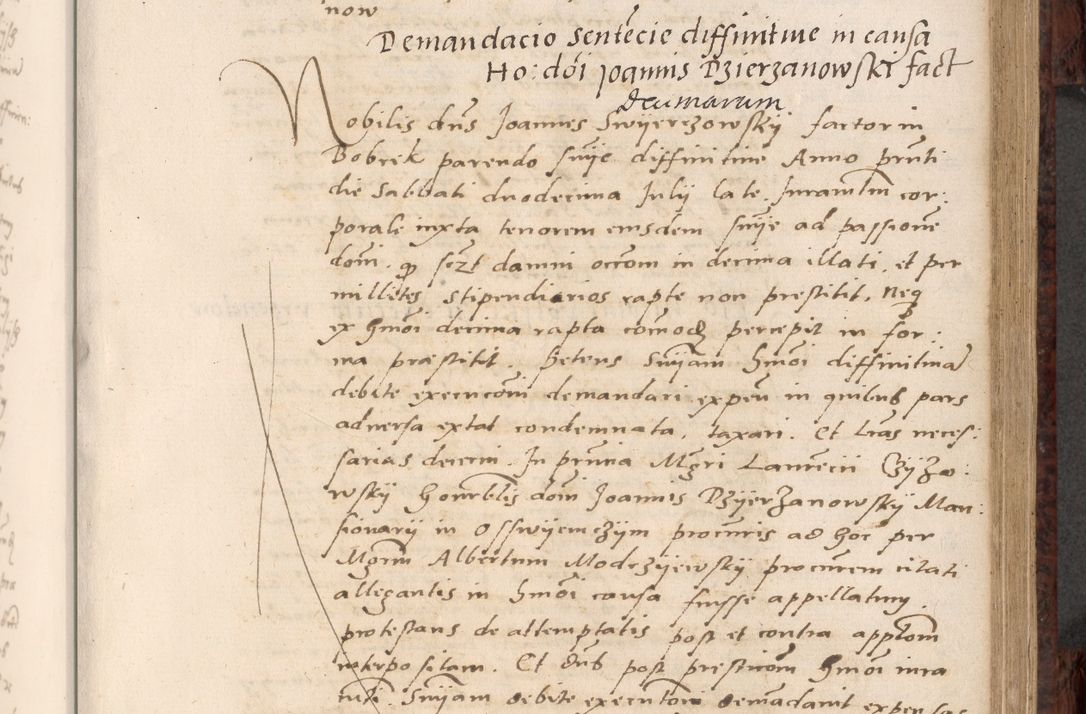 now
Demandacio sentēcie diffinitiue in causa
Ho: dōi Joannis Dzierzanowski fact
decimarum
Nobilis dn̄s Joannes Swyerczowskÿ factor in
Bobrek parendo sn̄ÿe diffinitiue Anno prn̄ti
die Sabbati duodecima Julÿ late. Juramtm̄ cor:
porale iuxta tenorem eiusdem sn̄ÿe ad passionē
dom̄. damni occom̄ in decima illati, et per
millites stipendiarios rapte non prestitit, neq
ex hm̄oi decima rapta com̄od percepit in for:
ma præstitit. petens Sn̄ÿam hm̄oi diffinitiua
debite execucom̄ demandari expen̄ in quibus pars
aduersa extat condemnata, taxari. Et Lrās neces:
sarias decern. In prn̄cia Mgr̄i Laurēcii
wskÿ Honrblis dom̄ Joannis Dzÿerzanowskÿ Man:
sionarÿ in Osswÿenczÿm procur̄is ad hoc per
Mgrm̄ Albertum Modczÿewskÿ procur̄em citati
allegantis in hm̄oi causa fuisse appellatum,
protestans de attemptatis post et contra applom̄
interpositam. Et dn̄s post presticom̄ hm̄oi iura
Sn̄ÿam debite executom̄ demādauit expensas